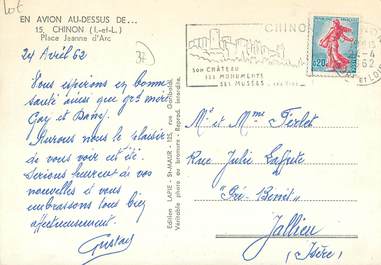 Lot
EN AVION AU-DESSUS DE...
15. CHINON (I.-et-L.)
Place Jeanne d'Arc
24 Avril 62
37
Vous espérons en bonne
santé ainsi que gd' mère
Guy et Dany.
Aurons nous le plaisir
de vous voir cet été.
Serions heureux de vos
nouvelles et vous
embrassons tous bien
affectueusement.
Gustave
Edition LAPIE - St-MAUR - 125, rue Garibaldi.
Véritable photo au bromure - Reprod. interdite.
CHINON
SON CHÂTEAU
SES MONUMENTS
SES MUSÉES
SES VINS
-4
62
0,20
Mr et Mme Ferlet
Rue Julie
"Pré-Bénit"
Jallieu
(Isère)